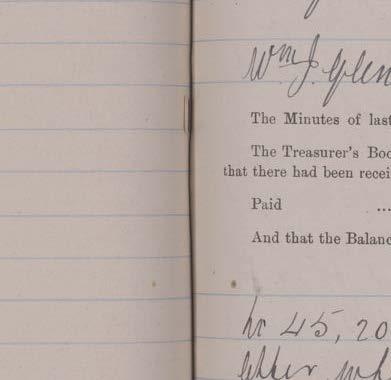 Wm J. Glen
The Minutes of last
The Treasurer's Boo
that there had been recei
Paid ...
And that the Balanc
45, 20
letter wh